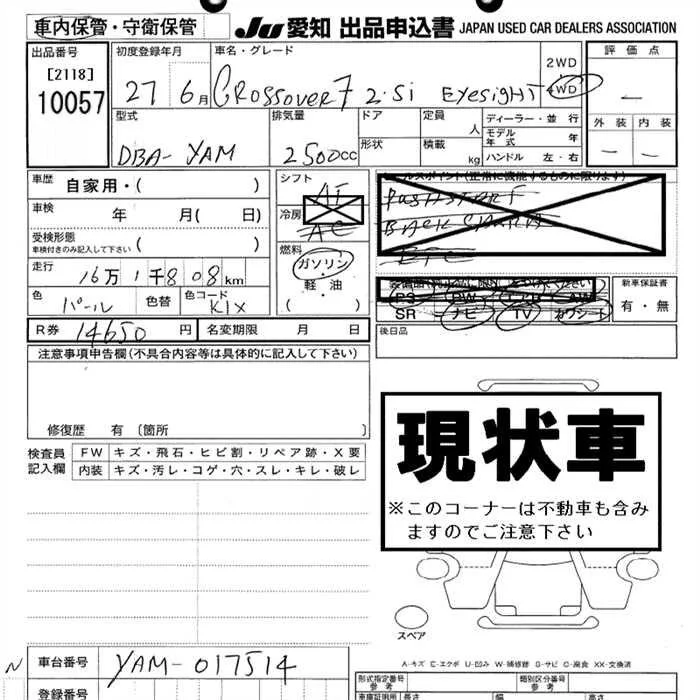 車内保管・守衛保管 JU 愛知 出品申込書 JAPAN USED CAR DEALERS ASSOCIATION
出品番号 初度登録年月 車名・グレード 2WD 評価点
[2118] 27 6月 CROSSOVER7 2.5i EYESIGHT 4WD
10057
型式 排気量 ドア 定員 人 ディーラー・並行 外装 内装
DBA-YAM 2500cc 形状 積載 kg モデル年式 年
ハンドル 左・右
車歴 自家用・( ) シフト AT セールスポイント(正常に機能するものに限ります)
車検 年 月( 日) 冷房 AC PUSH START
受検形態 車検付きのみ記入して下さい ( ) 燃料 BACK
走行 16万1千808km ガソリン・軽油 ETC
色 パール 色替 色コード K1X ( ) PS PW AW 新車保証書
SR ナビ TV カワシート 有・無
R券 14650円 名変期限 月 日 後日品
注意事項申告欄(不具合内容等は具体的に記入して下さい)
修復歴 有 〔箇所 〕
検査員記入欄 FW キズ・飛石・ヒビ割・リペア跡・X要
内装 キズ・汚レ・コゲ・穴・スレ・キレ・破レ
現状車
※このコーナーは不動車も含み
ますのでご注意下さい
スペア
A-キズ E-エクボ U-凹み W-補修跡 S-サビ C-腐食 XX-交換済
N 車台番号 YAM-017514 形式指定番号 参考 類別区分番号 参考
登録番号 車庫証明用 長さ 幅 高さ